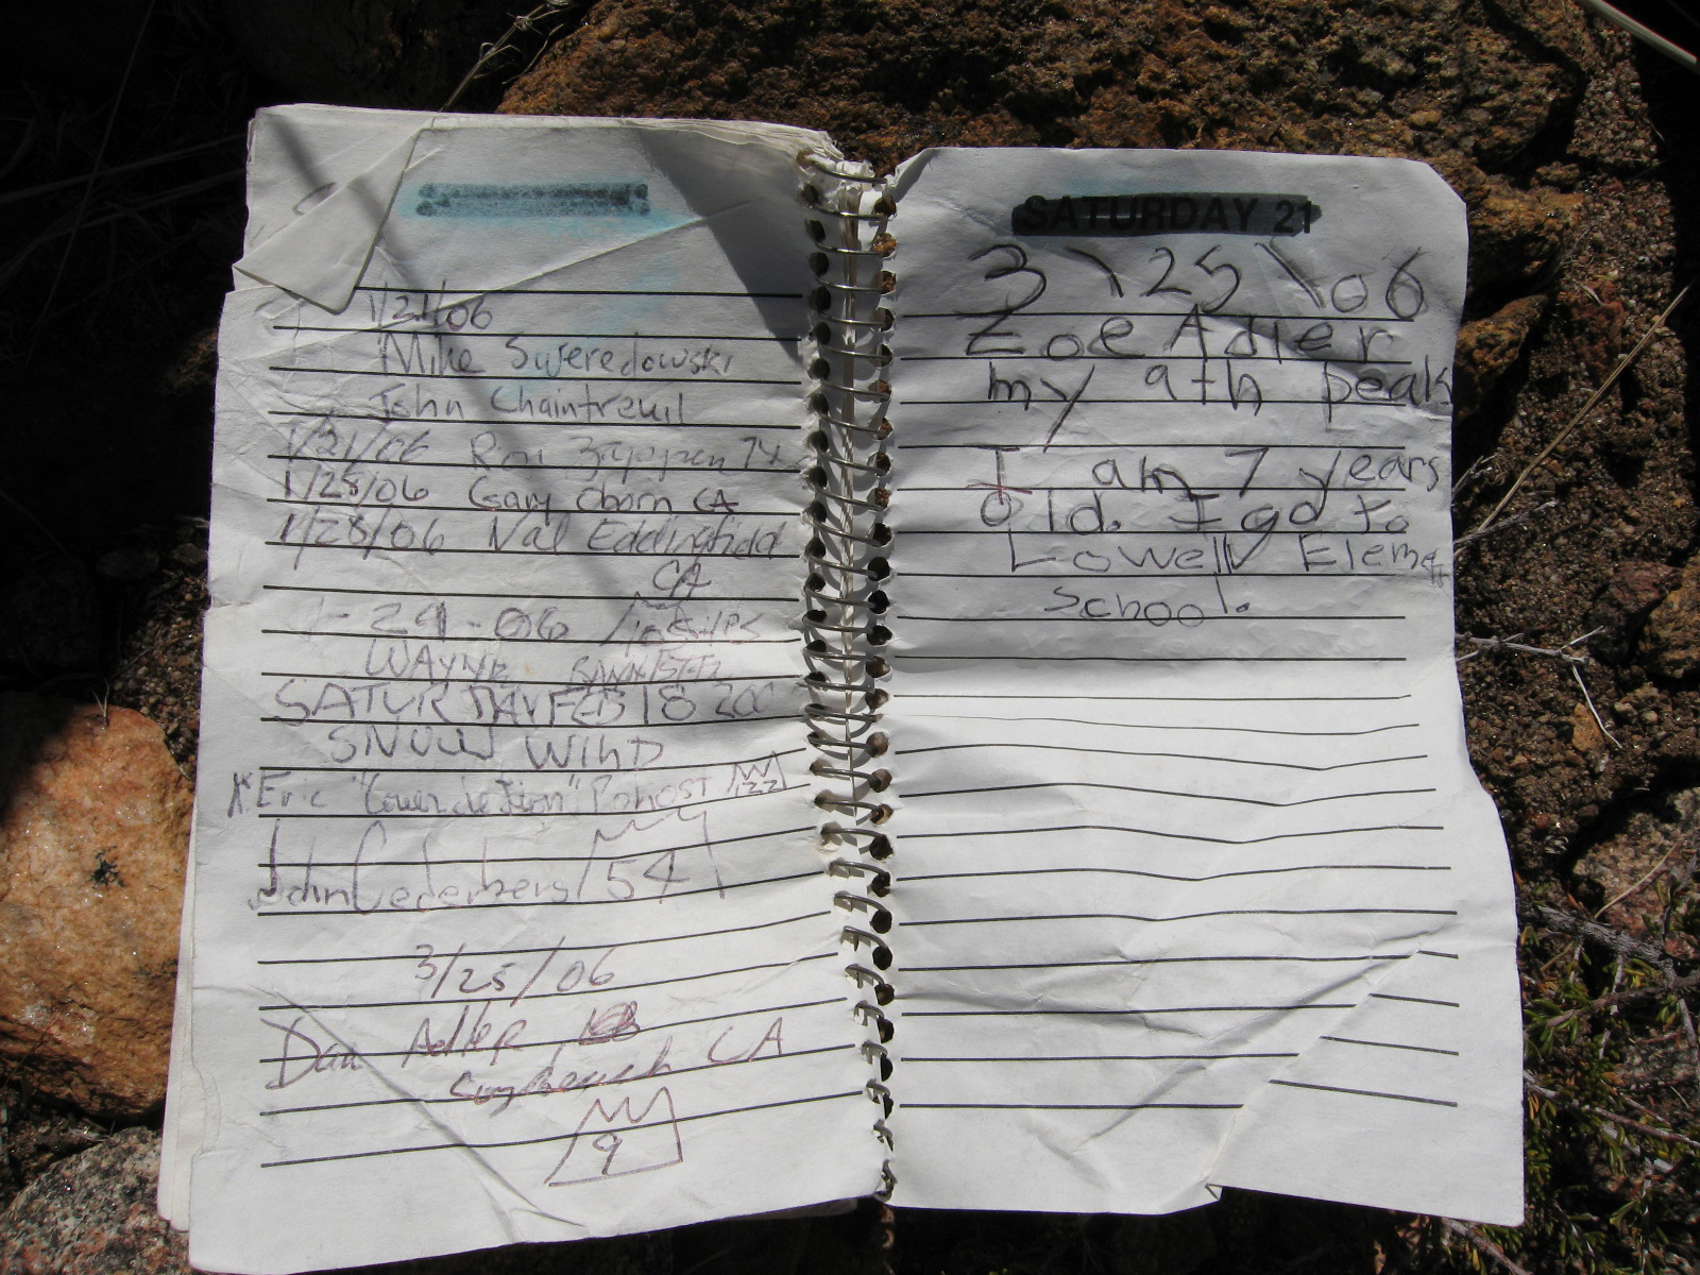 1/21/06
Mike Sweredowski
John Chaintreuil
1/21/06 Ron
1/28/06 Gary Oborn CA
1/28/06 Val Eddingfield
CA
1-29-06
WAYNE BANNISTER
SATURDAY FEB 18 200
SNOW WIND
Eric Pohost 122
John Cederberg 54
3/25/06
Dan Adler
CA
9
SATURDAY 21
3\25\06
Zoe Adler
my 9th peak
I am 7 years
old. I go to
Lowell Elem
School.